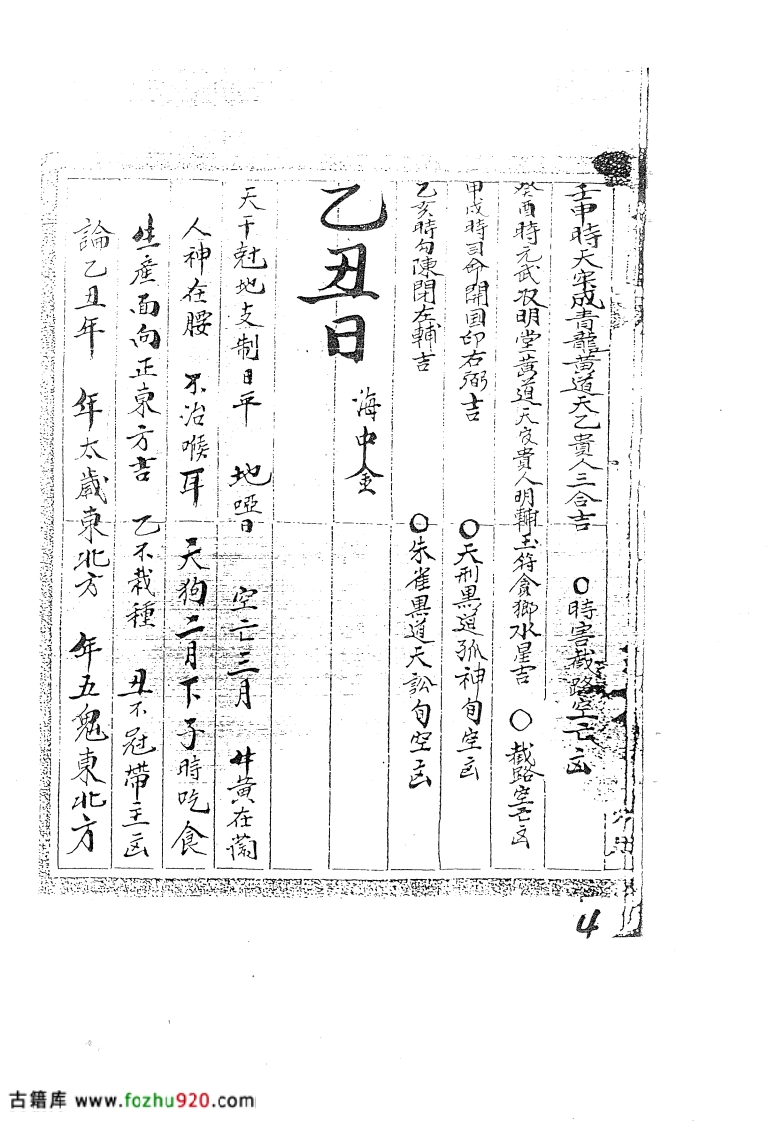 壬申時天牢成青龍黄道天乙貴人三合吉 〇時害截路空亡凶
癸酉時元武收明堂黄道天官貴人明輔玉符貪狼水星吉 〇截路空亡凶
甲戌時司命開国印右弼吉 〇天刑黒道孤神旬空凶
乙亥時勾陳閉左輔吉 〇朱雀黒道天訟旬空凶
乙丑日 海中金
天干尅地支制日平 地啞日 空亡三月 牛黄在
人神在腰 不治喉耳 天狗二月下子時吃食
生產面向正東方吉 乙不栽種 丑不冠帶主凶
論乙丑年 年太歲東北方 年五鬼東北方
4
古籍库 www.fozhu920.com